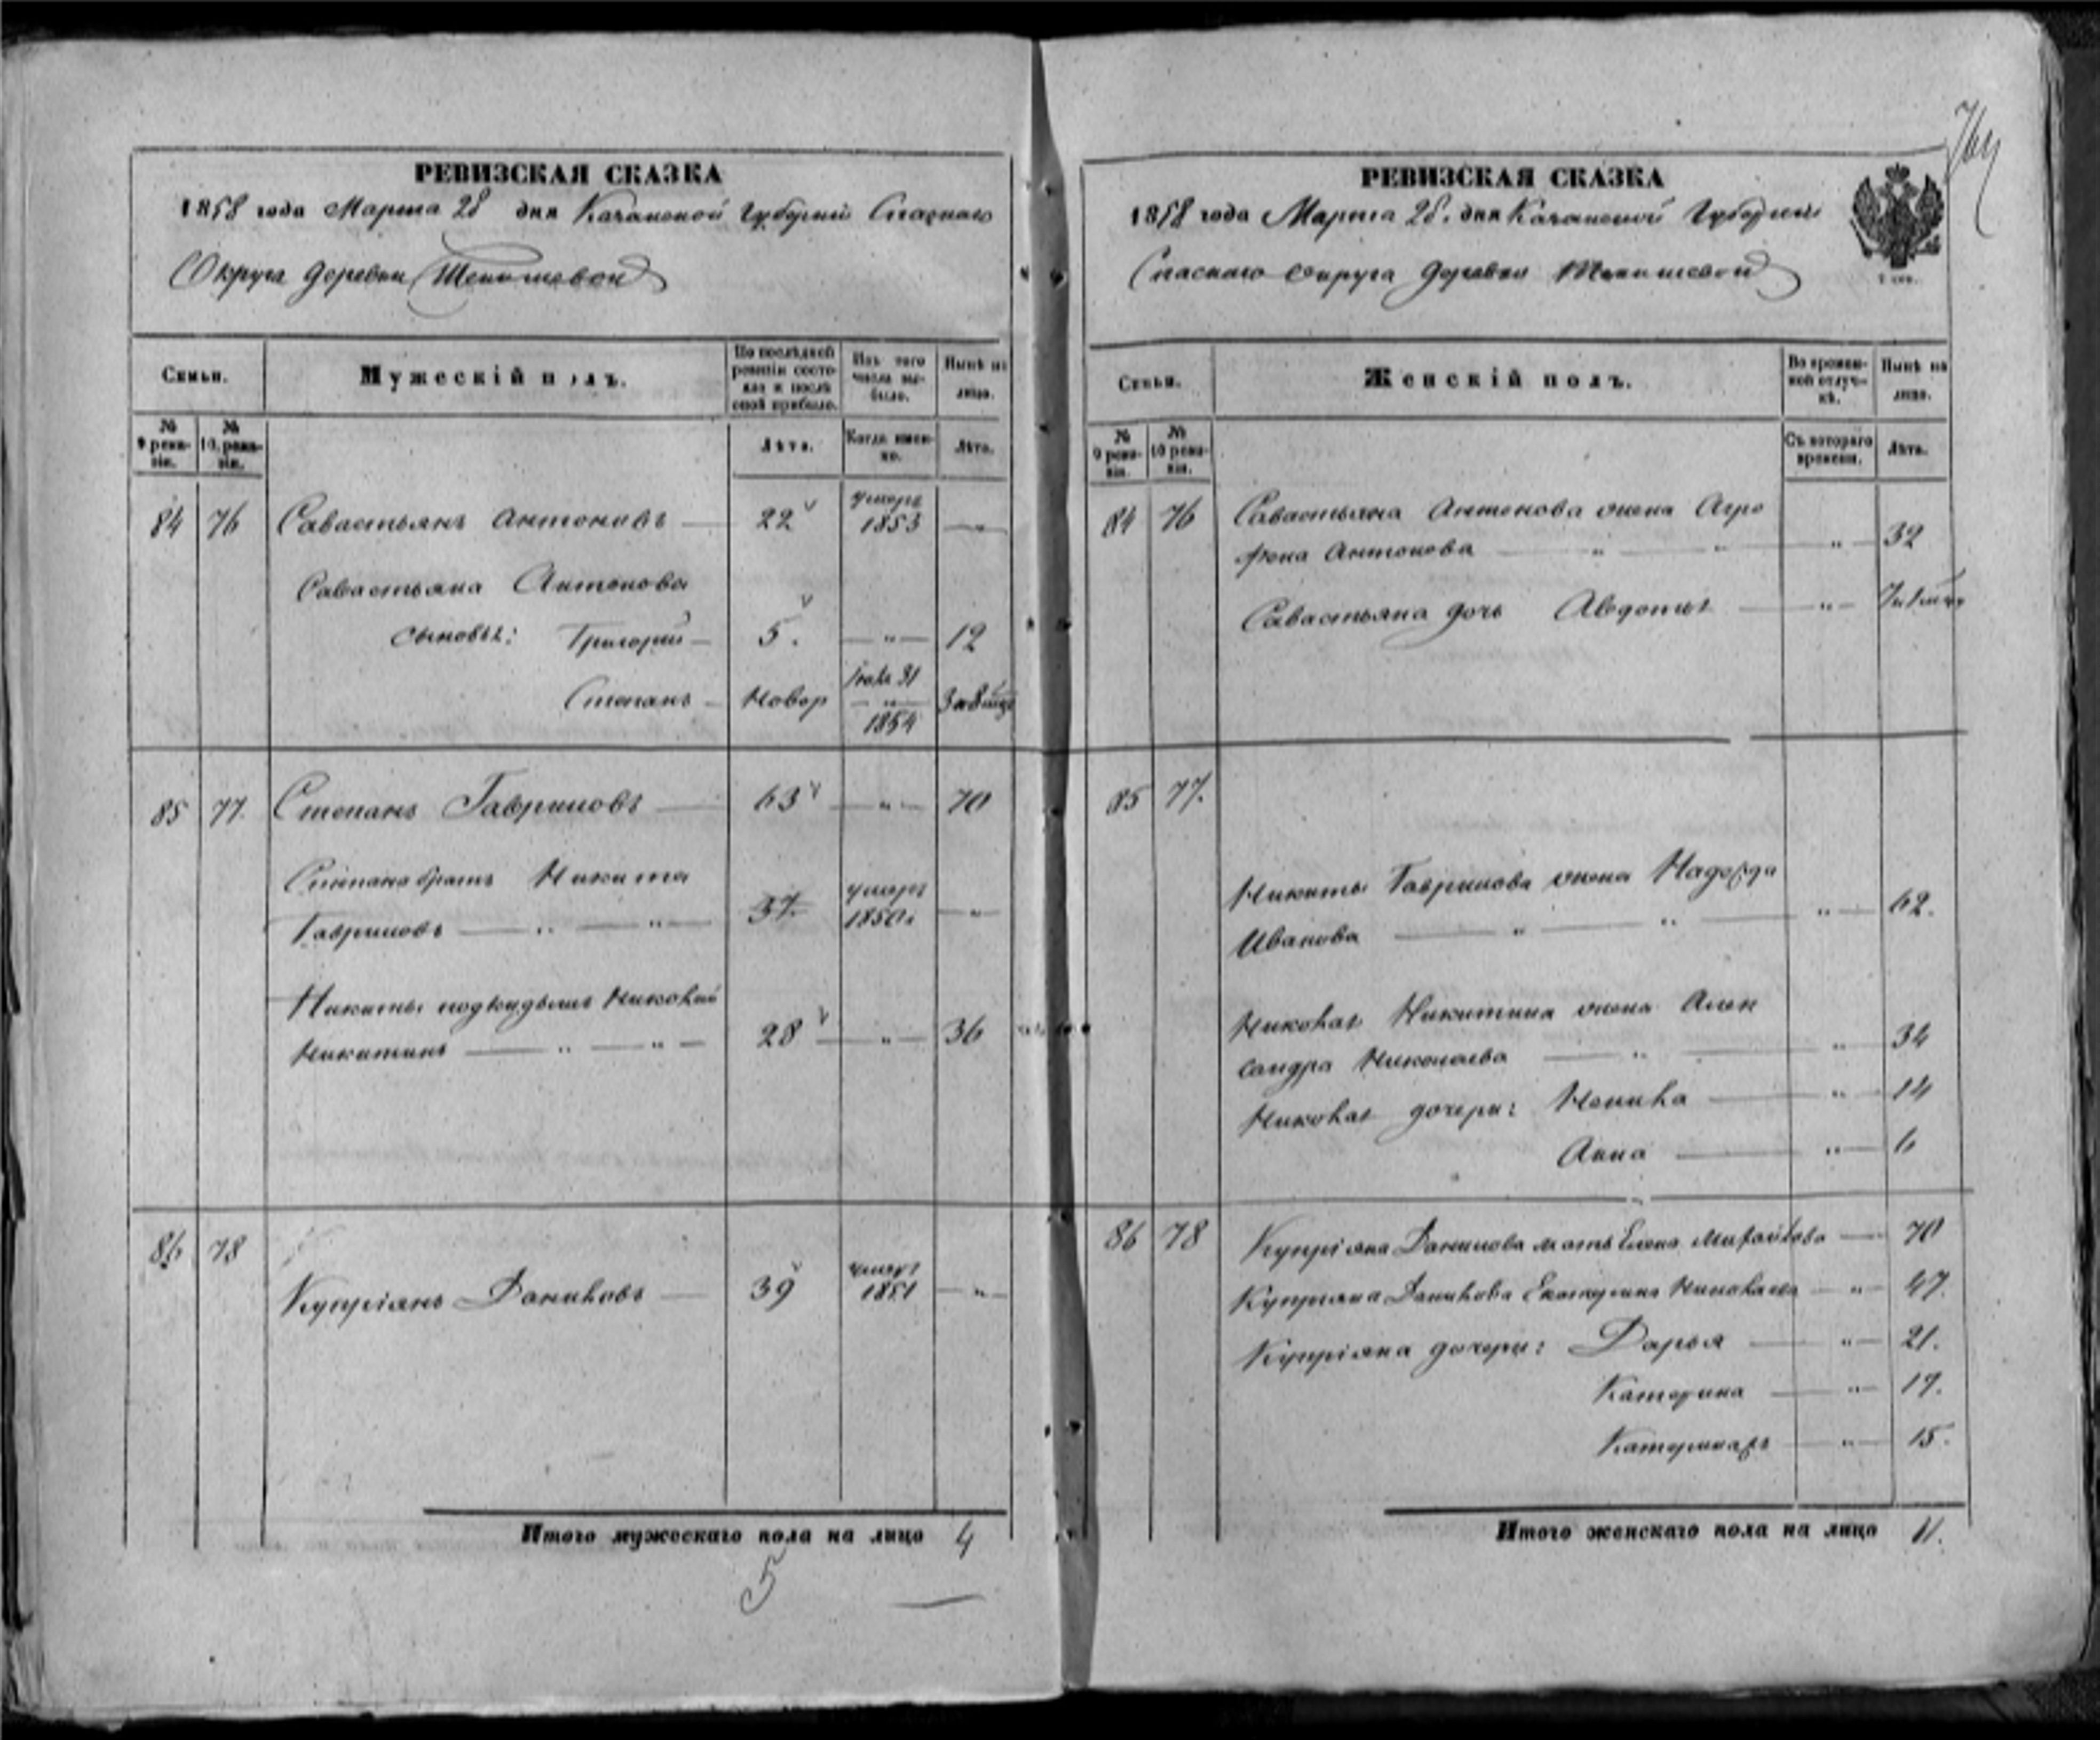 РЕВИЗСКАЯ СКАЗКА
1858 года Марта 28 дня Казанской Губерніи Спаскаго
Округа деревни
Семьи.
Мужескій полъ.
По послѣдней ревизіи состояло и послѣ оной прибыло.
Изъ того числа выбыло.
Нынѣ на лицо.
№ 9 ревизіи.
№ 10. ревизіи.
Лѣта.
Когда именно.
Лѣта.
84 76 Савастьянъ Антоновъ — 22 умеръ 1853 — „
Савастьяна Антонова
сыновья: Григорій — 5. — „ — 12
Степанъ — Новор 1854
85 77. Степанъ Гавриловъ — 63 — „ — 70
Степана братъ Никита
Гавриловъ — „ — „ — 57. умеръ 1850. — „
Никиты подкидышъ Николай
Никитинъ — „ — „ — 28 — „ — 36
86 78
Купріянъ Даниловъ — 39 умеръ 1851 — „ —
Итого мужескаго пола на лицо 4
5
РЕВИЗСКАЯ СКАЗКА
1858 года Марта 28. дня Казанской Губерніи
Спаскаго Округа деревни
Семьи.
Женскій полъ.
Во временной отлучкѣ.
Нынѣ на лицо.
№ 9 ревизіи.
№ 10 ревизіи.
Съ котораго времени.
Лѣта.
84 76 Савастьяна Антонова жена Агро
фена Антонова — „ — „ — „ — 32
Савастьяна дочь Авдотья — „ —
85 77.
Никиты Гаврилова жена Надежда
Иванова — „ — „ — „ — 62.
Николая Никитина жена Алек
сандра Николаева — „ — „ — 34
Николая дочери: — „ — 14
Анна — „ — 6
86 78 Купріяна Данилова мать Елена Михайлова — 70
Купріяна Данилова Екатерина Николаева — „ — 47.
Купріяна дочери: Дарья — „ — 21.
Катерина — „ — 19.
— „ — 15.
Итого женскаго пола на лицо 11.